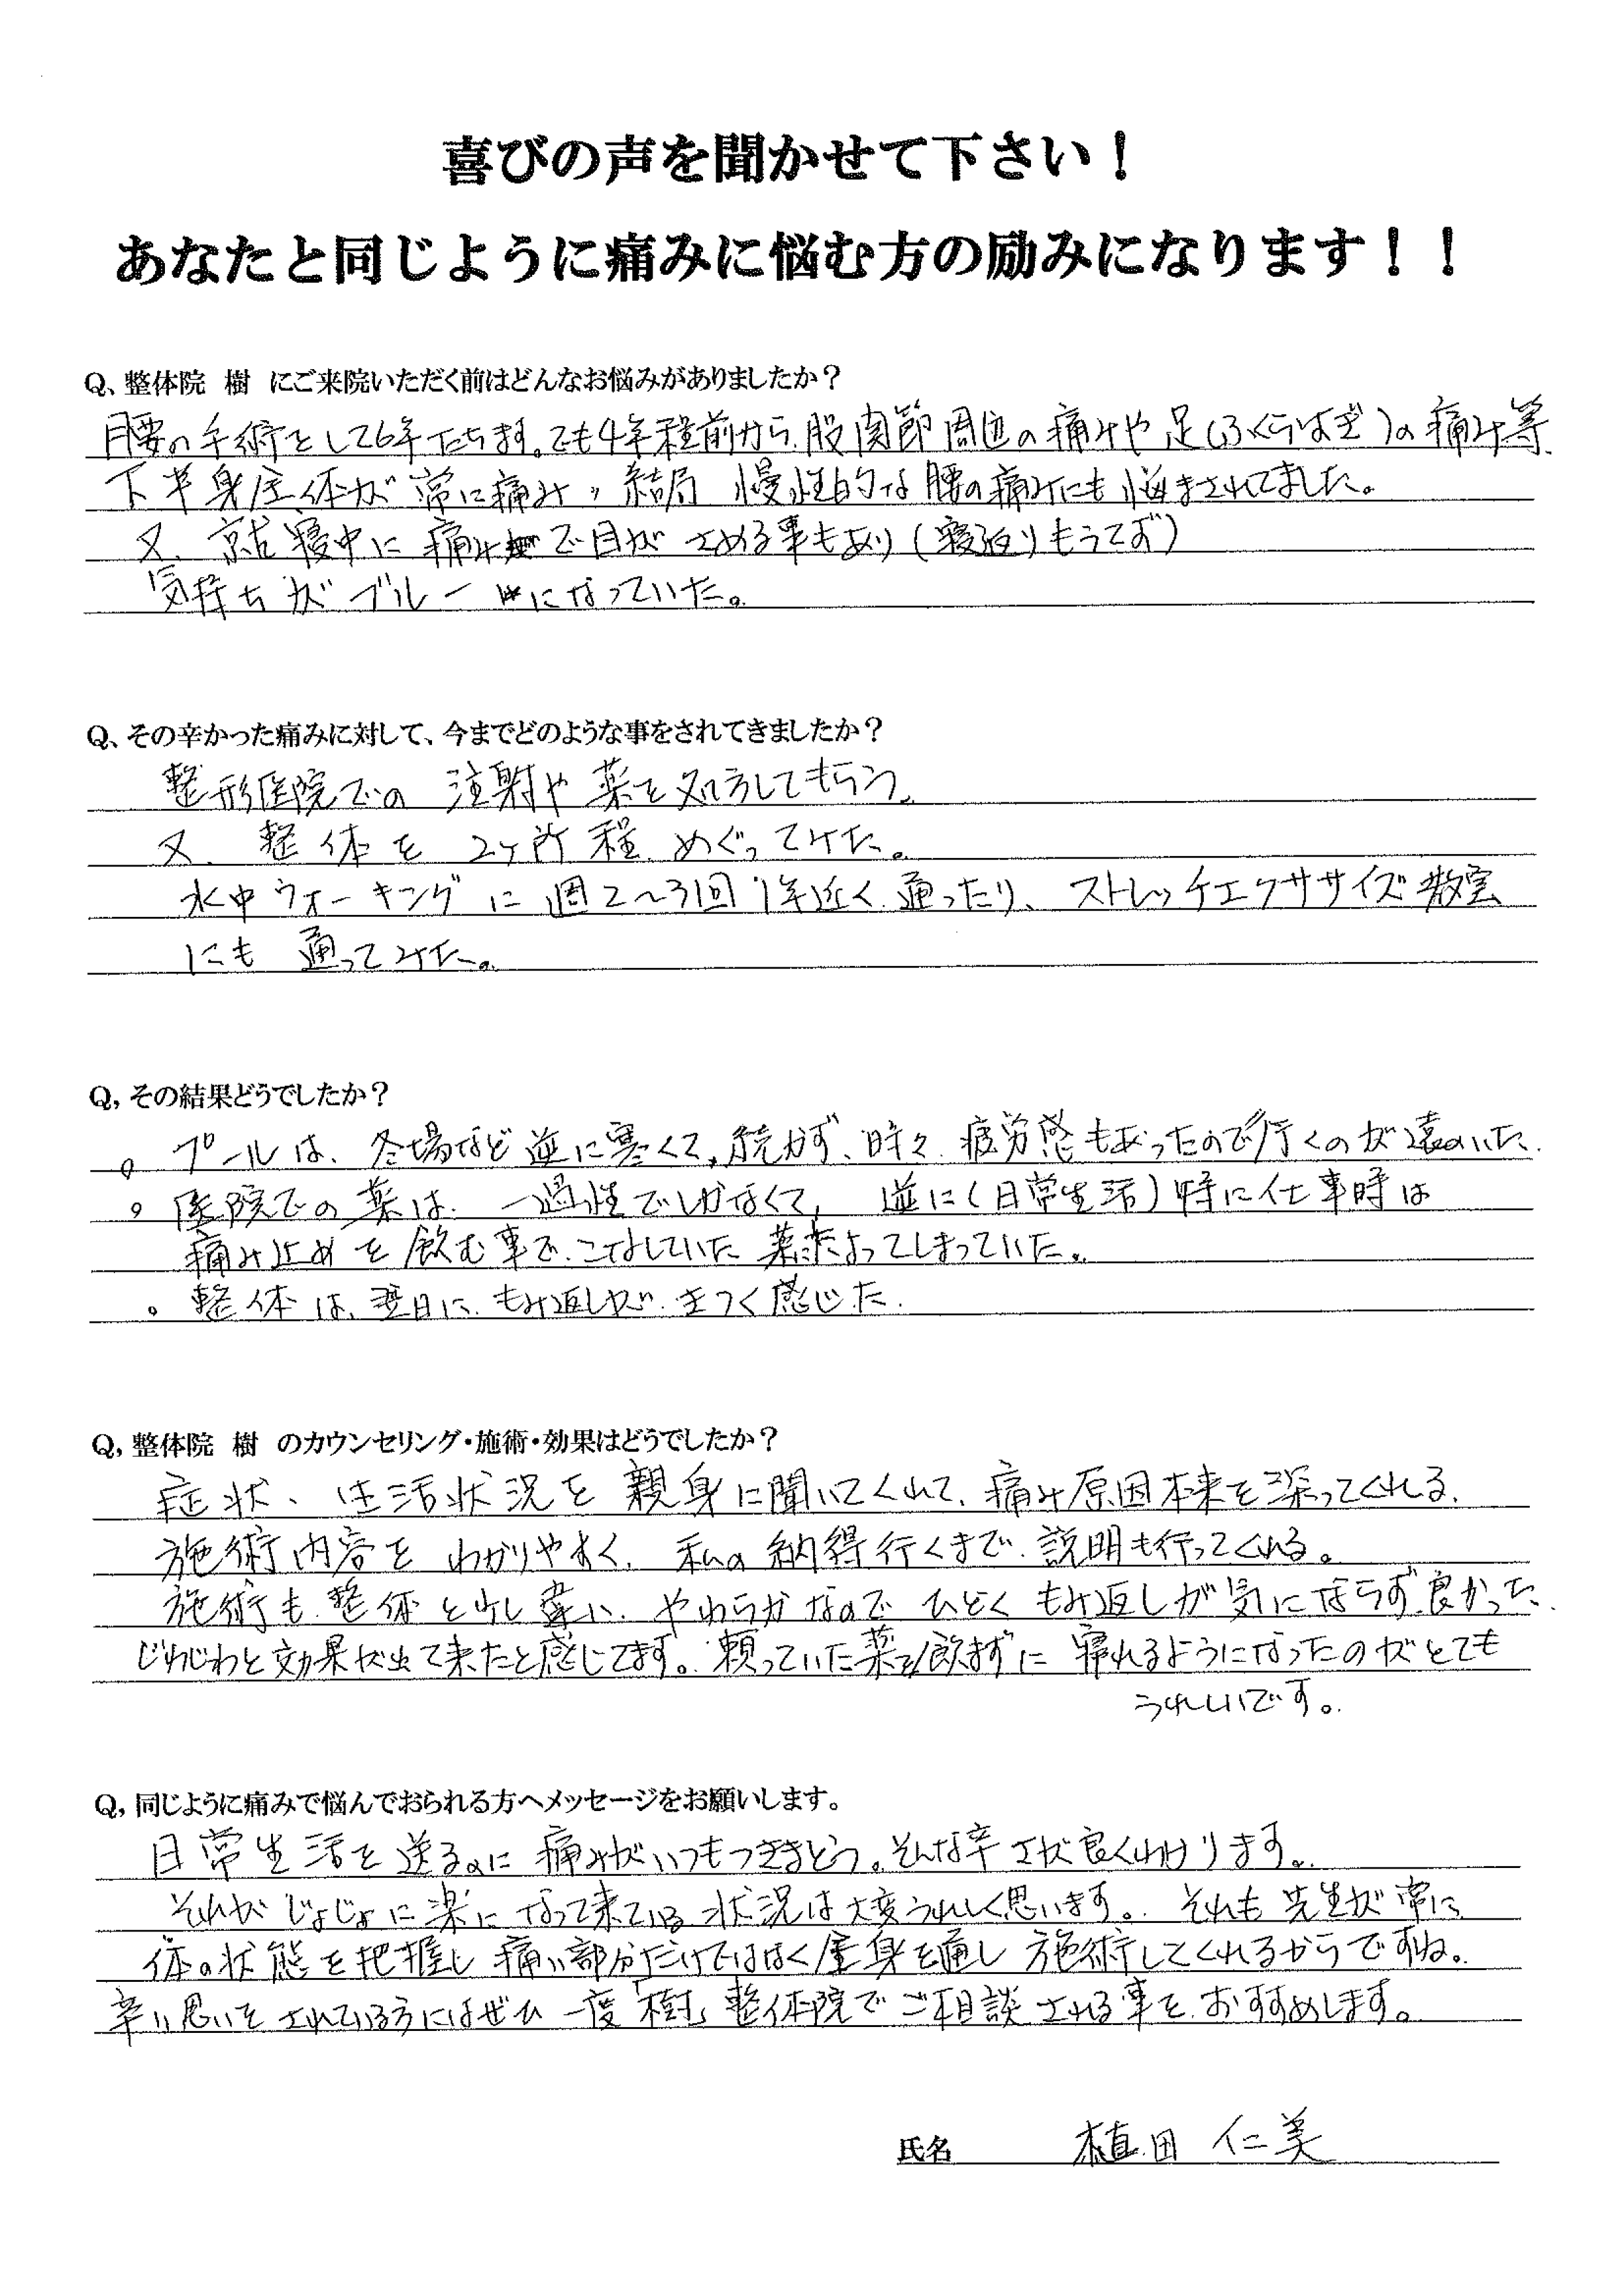 喜びの声を聞かせて下さい！
あなたと同じように痛みに悩む方の励みになります！！
Q、整体院　樹　にご来院いただく前はどんなお悩みがありましたか？
腰の手術をして6年たちます。でも4年程前から、股関節周辺の痛みや足(ふくらはぎ)の痛み等、
下半身全体が常に痛み、結局 慢性的な腰の痛みにも悩まされてました。
又、就寝中に痛みで目がさめる事もあり(寝返りもうてず)
気持ちがブルーになっていた。
Q、その辛かった痛みに対して、今までどのような事をされてきましたか？
整形医院での 注射や薬を処方してもらう。
又、整体を 2ヶ所程 めぐってみた。
水中ウォーキングに週2〜3回 1年近く通ったり、ストレッチエクササイズ教室
にも 通ってみた。
Q，その結果どうでしたか？
。プールは、冬場など逆に寒くて、続かず、時々 疲労感もあったので行くのが遠のいた。
。医院での薬は、一過性でしかなくて、逆に(日常生活)特に仕事時は
痛み止めを飲む事で、こなしていた 薬にたよってしまっていた。
。整体は、翌日に、もみ返しが、きつく感じた。
Q，整体院　樹　のカウンセリング・施術・効果はどうでしたか？
症状、生活状況を親身に聞いてくれて、痛み原因本来を深ってくれる。
施術内容を わかりやすく、私の納得行くまで、説明も行ってくれる。
施術も、整体と少し違い、やわらかなので ひどく もみ返しが気にならず、良かった。
じわじわと効果が出て来たと感じてます。頼っていた薬を飲まずに 寝れるようになったのがとても
うれしいです。
Q，同じように痛みで悩んでおられる方へメッセージをお願いします。
日常生活を送るのに 痛みがいつもつきまとう。そんな辛さが良くわかります。
それがじょじょに楽になって来ている状況は大変うれしく思います。それも先生が常に
体の状態を把握し 痛い部分だけではなく全身を通し 施術してくれるからですね。
辛い思いをされている方にはぜひ一度「樹」整体院でご相談される事を、おすすめします。
氏名　植田 仁美